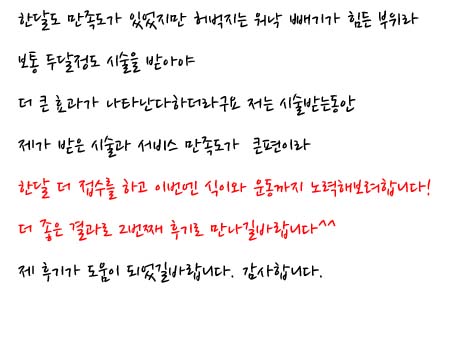 한달도 만족도가 있었지만 허벅지는 워낙 빼기가 힘든 부위라
보통 두달정도 시술을 받아야
더 큰 효과가 나타난다하더라구요 저는 시술받는동안
제가 받은 시술과 서비스 만족도가 큰편이라
한달 더 접수를 하고 이번엔 식이와 운동까지 노력해보려합니다!
더 좋은 결과로 2번째 후기로 만나길바랍니다^^
제 후기가 도움이 되었길바랍니다. 감사합니다.